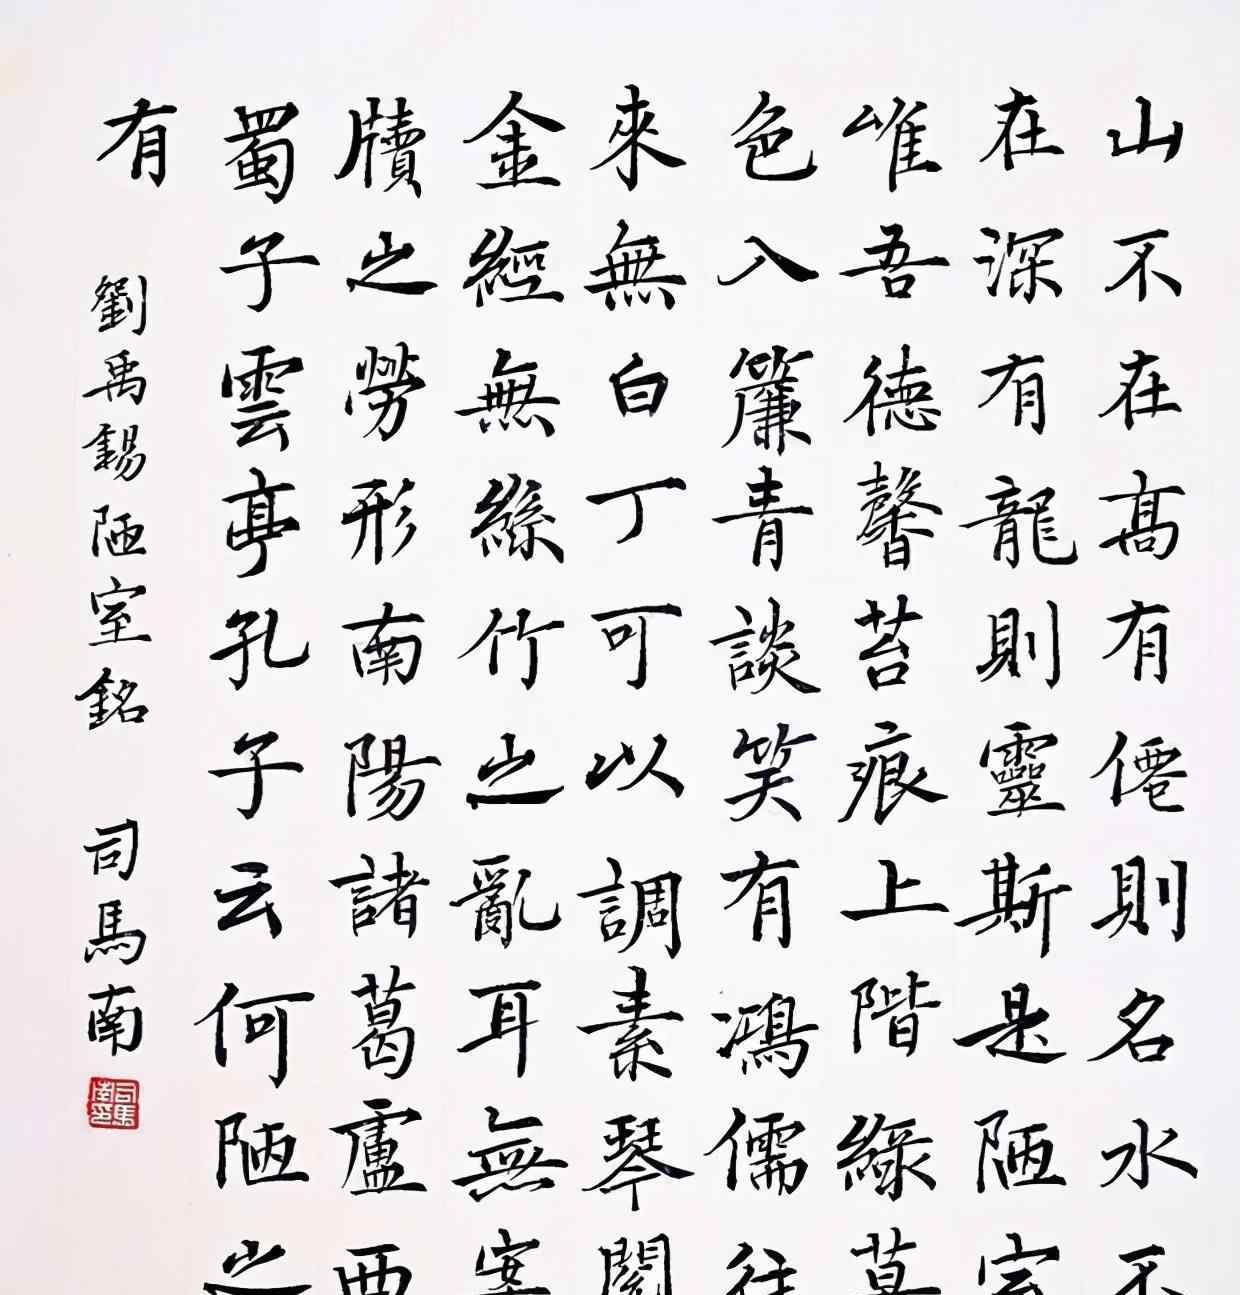 山不在髙有僊則名水不
在深有龍則靈斯是陋室
唯吾德馨苔痕上階綠草
色入簾青談笑有鴻儒往
來無白丁可以調素琴閱
金經無絲竹之亂耳無案
牘之勞形南陽諸葛廬西
蜀子雲亭孔子云何陋之
有 劉禹錫陋室銘 司馬南
司馬南印